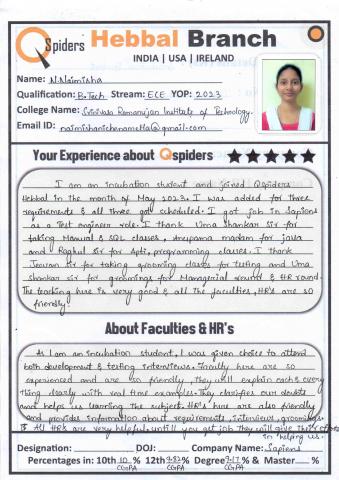 QSpiders Hebbal Branch
INDIA | USA | IRELAND
Name: N.Naimisha
Qualification: B.Tech Stream: ECE YOP: 2023
College Name: Srinivasa Ramanujan Institute of Technology.
Email ID: naimishanichenametla@gmail.com
Your Experience about Qspiders
I am an incubation student and joined Qspiders
Hebbal in the month of May 2023. I was added for three
requirements & all three got scheduled. I got job in Sapiens
as a Test engineer role. I thank Uma Shankar Sir for
taking Manual & SQL classes, Anupama madam for java
and Raghul Sir for Apti, programming classes. I thank
Jeevan Sir for taking grooming classes for testing and Uma
Shankar Sir for groomings for Managerial round & HR round.
The teaching here is very good & all the faculties, HR's are so
friendly.
About Faculties & HR's
As I am an incubation student, I was given choice to attend
both development & testing interviews. Faculty here are so
experienced and are so friendly, They will explain each & every
thing clearly with real time examples. They clarifies our doubts
and helps us learning the subject. HR's here are also friendly
and provides information about requirements, interviews, groomings.
All HR's are very helpful. until you get job they will give their efforts
in helping us.
Designation: DOJ: Company Name: Sapiens
Percentages in: 10th 10 % 12th 9.83 % Degree 9.17 % & Master %
CGPA CGPA CGPA